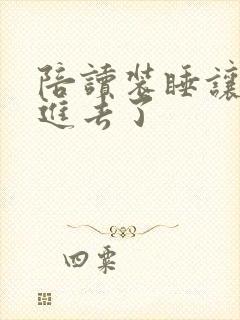 陪讀裝睡讓
進去了
四粟